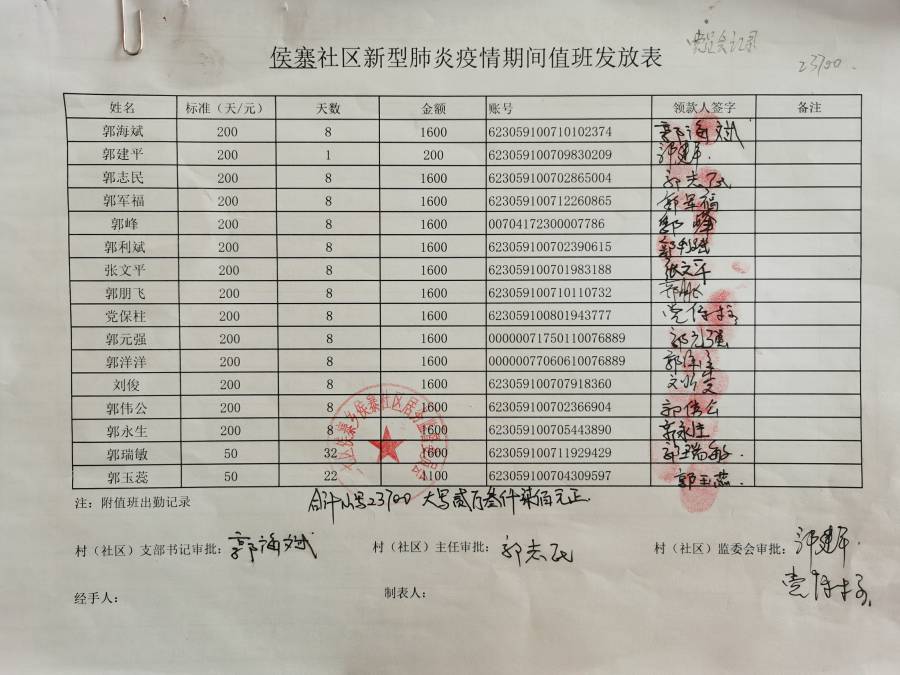 侯寨社区新型肺炎疫情期间值班发放表
23700.
姓名 标准（天/元） 天数 金额 账号 领款人签字 备注
郭海斌 200 8 1600 623059100710102374 郭海斌
郭建平 200 1 200 623059100709830209 郭建平
郭志民 200 8 1600 623059100702865004 郭志民
郭军福 200 8 1600 623059100712260865 郭军福
郭峰 200 8 1600 00704172300007786 郭峰
郭利斌 200 8 1600 623059100702390615 郭利斌
张文平 200 8 1600 623059100701983188 张文平
郭朋飞 200 8 1600 623059100710110732 郭朋飞
党保柱 200 8 1600 623059100801943777 党保柱
郭元强 200 8 1600 00000071750110076889 郭元强
郭洋洋 200 8 1600 00000077060610076889 郭洋洋
刘俊 200 8 1600 623059100707918360 刘俊
郭伟公 200 8 1600 623059100702366904 郭伟公
郭永生 200 8 1600 623059100705443890 郭永生
郭瑞敏 50 32 1600 623059100711929429 郭瑞敏
郭玉蕊 50 22 1100 623059100704309597 郭玉蕊
侯寨乡侯寨社区居务监督委员会
注：附值班出勤记录 合计小写23700 大写贰万叁仟柒佰元正
村（社区）支部书记审批：郭海斌 村（社区）主任审批：郭志民 村（社区）监委会审批：郭建平
党保柱
经手人： 制表人：